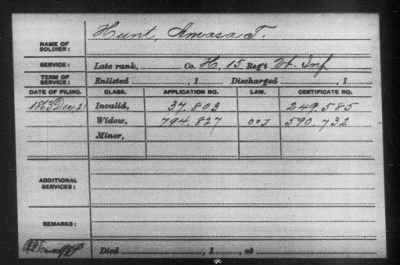 NAME OF SOLDIER: Hunt, Amasa T.
SERVICE: Late rank, Co. H, 15 Reg't Vt. Inf
TERM OF SERVICE: Enlisted , 1 Discharged , 1
DATE OF FILING. CLASS. APPLICATION NO. LAW. CERTIFICATE NO.
1863 Dec, 21 Invalid, 37.803 249.585
Widow, 794.827 590.732
Minor,
ADDITIONAL SERVICES:
REMARKS:
Died , 1 , at